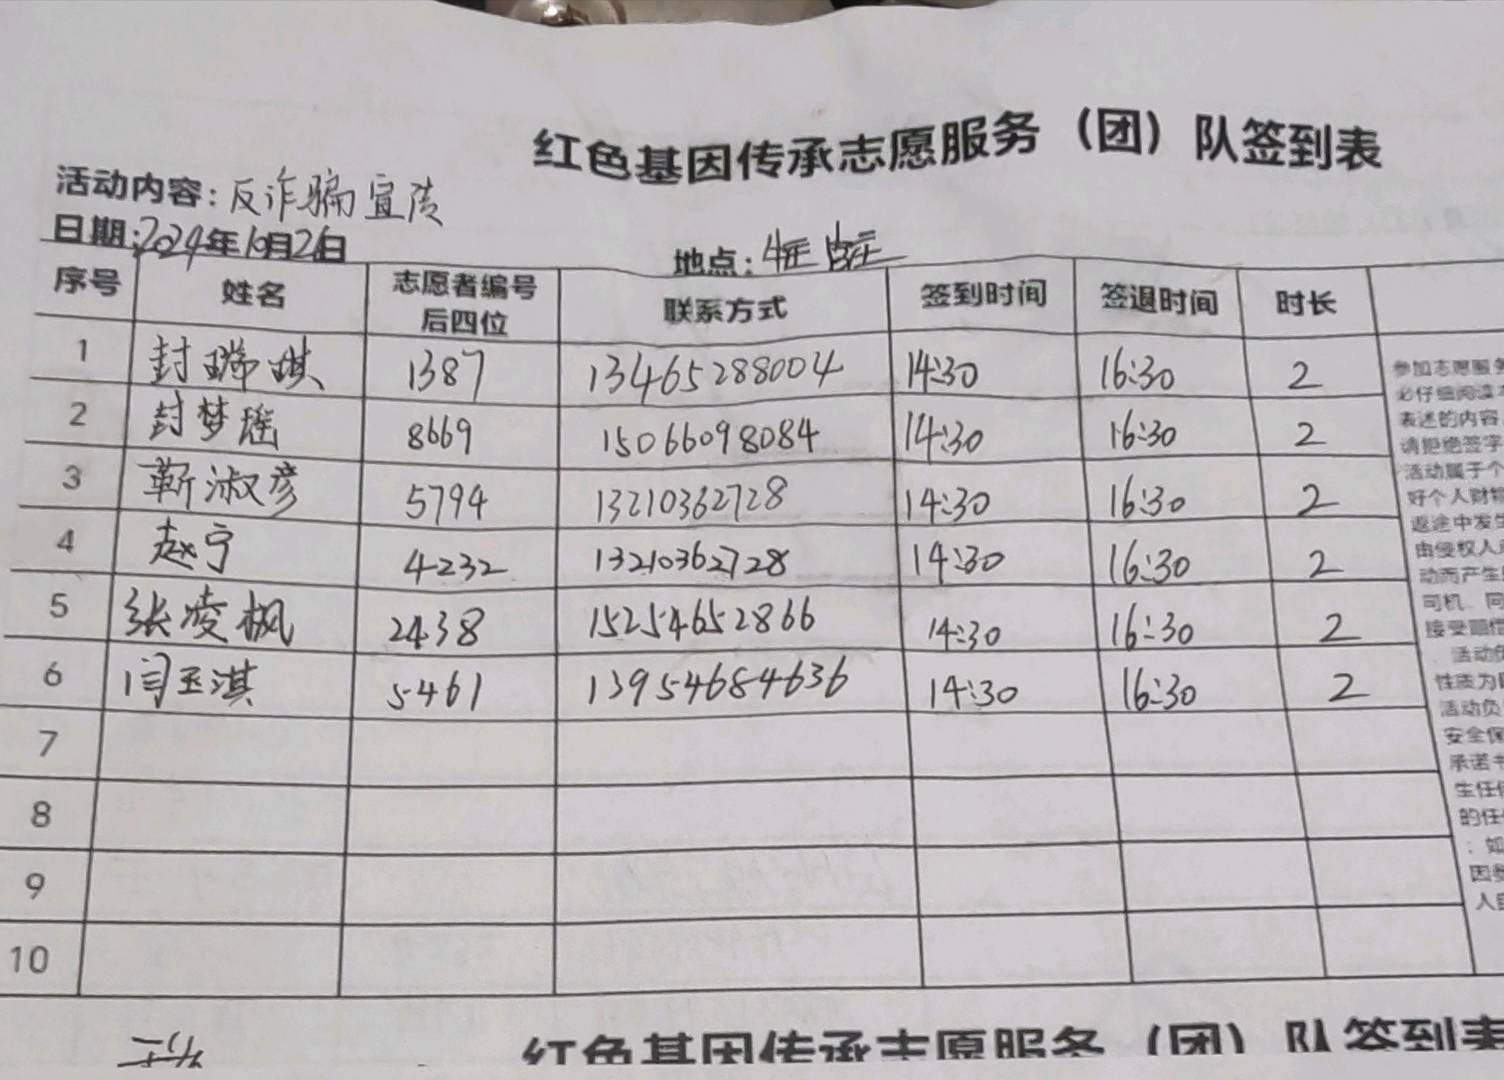 红色基因传承志愿服务（团）队签到表
活动内容:反诈骗宣传
日期:2024年10月26日
地点:
序号 姓名 志愿者编号后四位 联系方式 签到时间 签退时间 时长
1 封瑞琪 1387 13465288004 14:30 16:30 2
2 封梦瑶 8669 15066098084 14:30 16:30 2
3 靳淑彦 5794 13210362728 14:30 16:30 2
4 赵宁 4232 13210362728 14:30 16:30 2
5 张凌枫 2438 15254652866 14:30 16:30 2
6 闫玉淇 5461 13954684636 14:30 16:30 2
7
8
9
10
参加志愿服务
必仔细阅读
表述的内容
请拒绝签字
活动属于个
好个人财物
返途中发生
由侵权人
动而产生
司机、同
接受赔偿
活动
性质为
活动负
安全保
承诺书
生任何
的任
；如
因
人
红色基因传承志愿服务（团）队签到表